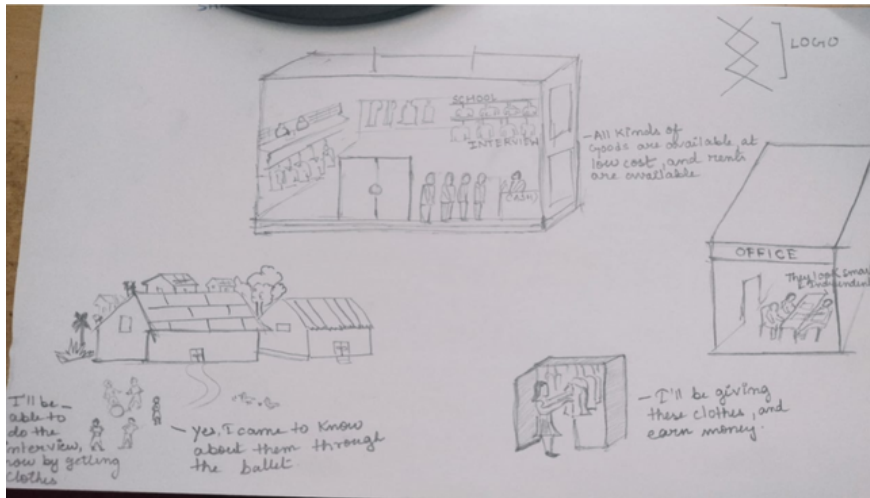 LOGO
SCHOOL
INTERVIEW
CASH
- All kinds of
Goods are available at
low cost, and rents
are available
OFFICE
They look smart
& Independent
I'll be
able to
do the
interview,
now by getting
clothes
- Yes, I came to know
about them through
the ballet
- I'll be giving
these clothes, and
earn money.